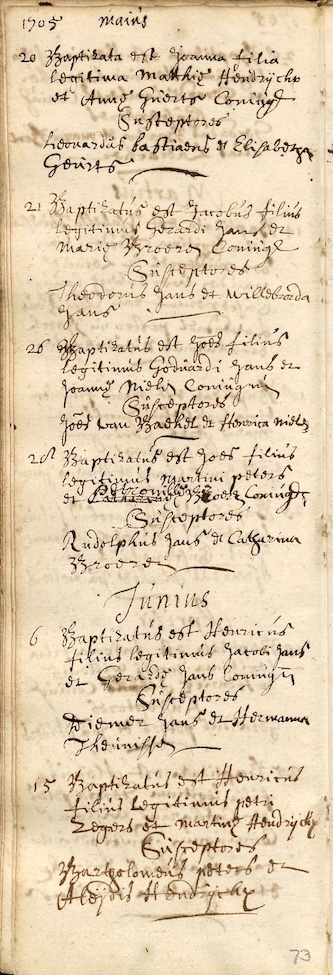 1705 Maius
20 Baptizata est Joanna filia
legitima Matthię Hendrijckx
et Annę Guerts Coniug̃
Susceptores
Leonardus bastiaens et Elisabetha
Geurts
21 Baptizatus est Jacobus filius
legitimus Gerardi Jans et
Marię Broeren Coniug̃
Susceptores
Theodorus Jans et Willebrorda
Jans
26 Baptizatus est Joẽs filius
legitimus Godnardi Jans et
Joannę Nielen Coniugũ
Susceptores
Joẽs van Baexel et Henrica Nielen
Baptizatus est Joẽs filius
legitimus Martini peters
et Petronillę Broere Coniug̃
Susceptores
Rudolphus Jans et Catharina
Broeren
Junius
6 Baptizatus est Henricus
filius legitimus Jacobi Jans
et Gerardę Jans Coniugũ
Susceptores
Diemer Jans et Hermanna
Theunissen
15 Baptizatus est Henricus
filius legitimus petri
Zegers et Martinę Hendrijckx
Susceptores
Bartholomeus peters et
Aleijdis Hendrijckx
73